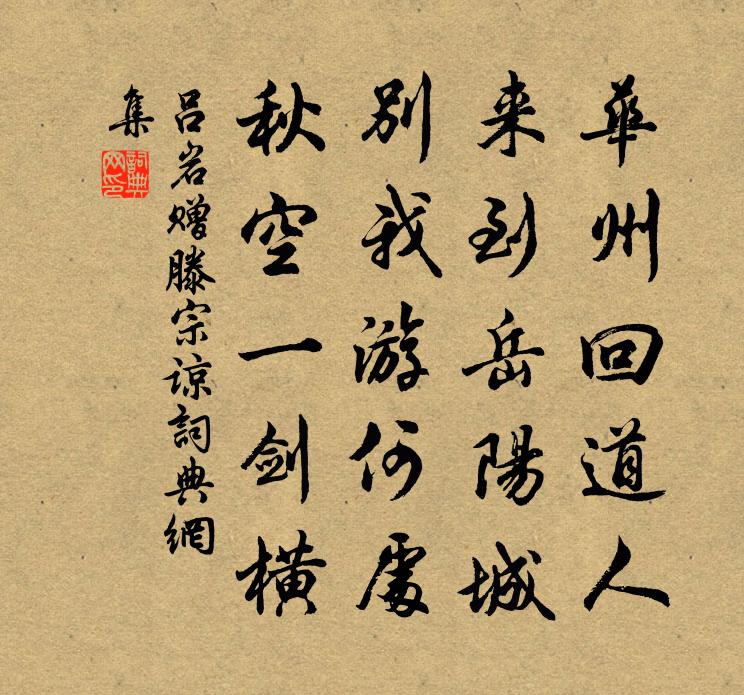 華州回道人
来到岳陽城
別我游何處
秋空一剑横
吕岩赠滕宗谅詞典網
集
詞典网印